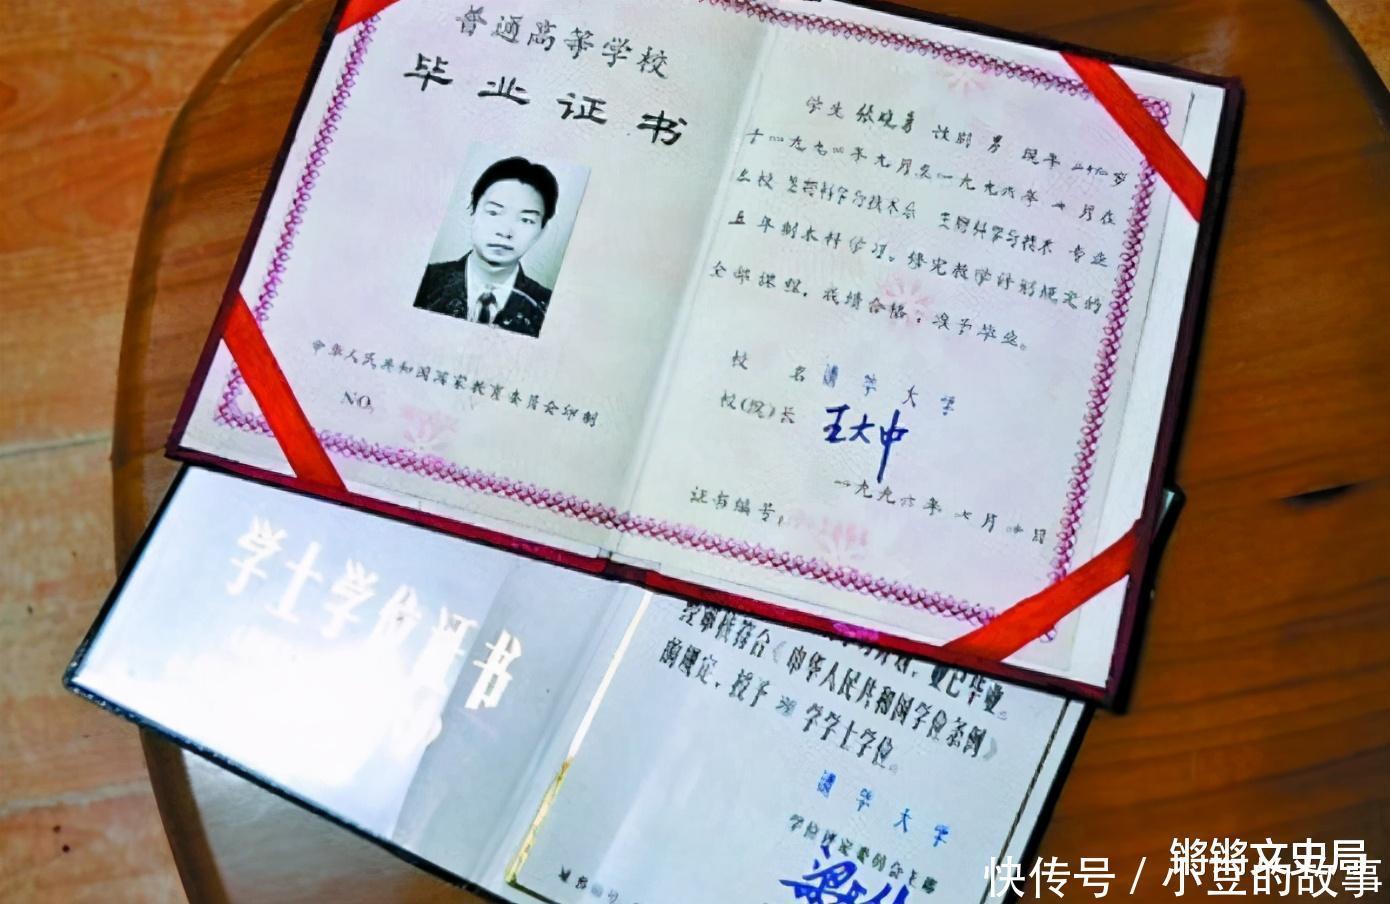 普通高等学校
毕业证书
中华人民共和国国家教育委员会印制
NO.
学生 张晓勇 性别 男 现年 岁
于一九九 年九月至一九九六年七月在
本校 生物科学与技术系 生物科学与技术 专业
五年制本科学习。修完教学计划规定的
全部课程，成绩合格，准予毕业。
校 名 清华大学
校(院)长 王大中
一九九六年七月 日
证书编号：
学士学位证书
业已毕业。
经审核符合《中华人民共和国学位条例》
的规定，授予 理 学学士学位。
清华大学
学位评定委员会主席
锵锵文史局
快传号 / 小豆的故事